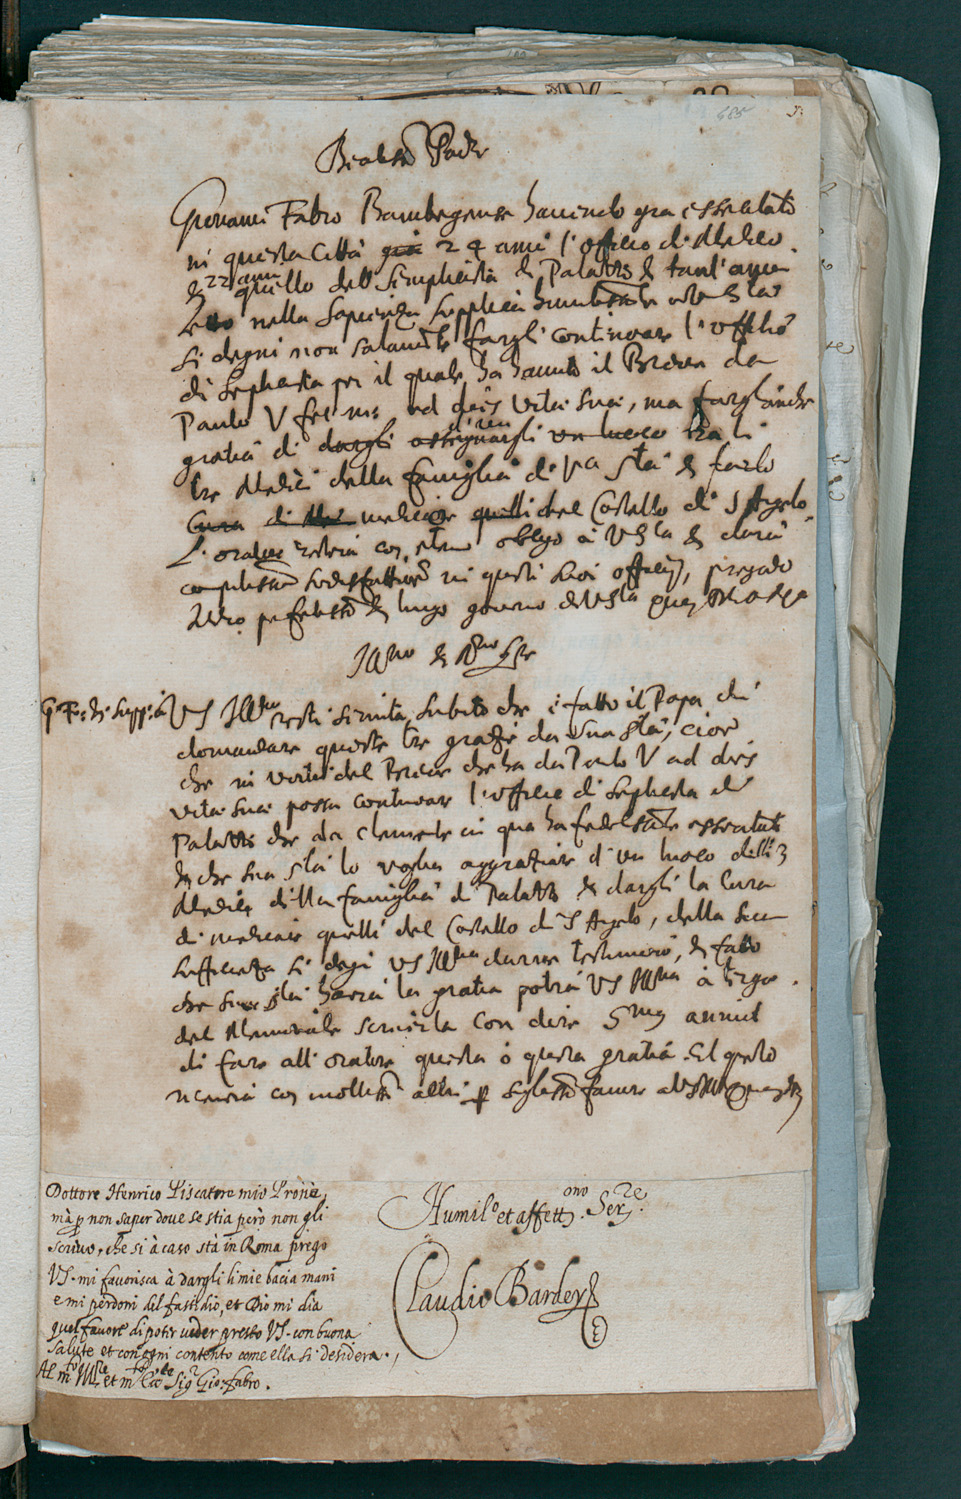 Beatiss.o Padre
Giovanni Fabro Bambergense havendo gia essercitato
in questa Città già 24 anni l'officio di Medico
& 22 anni quello del Simplicista di Palatio & tant'anni
Letto nella Sapienza supplica humiliss.te V S.tà
si degni non solamente fargli continovare l'officio
di Simplicista per il quale ha havuto il Breve da
Paulo V fel. me. ad dies vitæ suæ, ma fargli anche
gratia di dargli assignargli un luoco tra li
tre Medici della famiglia di V.a S.tà & farlo
Cura di medicar quelli del Castello di S Angelo
L'oratore resterà con eterno obligo à V S.tà & darà
compitiss.a sodisfattione in questi suoi officij, pregando
Iddio felicis.o & lungo governo di V S.tà
Ill.mo & R.mo Sig.re
G. F. di supp.a VS Ill.ma resti servita subito che è fatto il Papa di
domandare queste tre gratie da Sua S.tà, cioè
che in virtù del Breve che ha da Paulo V ad dies
vitæ suæ possa continovare l'officio di Simplicista di
Palatio che da Clemente in qua ha fedeliss.te essercitato
& che sua S.tà lo voglia aggratiare d'un luoco delli 3
Medici della famiglia di Palatio & dargli la Cura
di medicare quelli del Castello di S Angelo, della sua
sufficienza si degni VS Ill.ma darne testimonio, & fatto
che sua S.tà haverà la gratia potrà VS Ill.ma à tergo
del Memoriale scriverla con dire S.mus annuit
di fare all'oratore questa ò questa gratia. Et questo
riceverà con moltiss.i altri p favore
Dottore Henrico Piscatore mio Prone,
mà p non saper doue se stia però non gli
scriuo, che si à caso stà in Roma prego
VS. mi fauorisca à dargli li mie bacia mani
e mi perdoni del fastidio, et Dio mi dia
quel fauore di poter ueder presto VS. con buona
salute et con ogni contento come ella si desidera.
Al m.to Ill.re et m.to Ecc.te Sig.r Gio: fabro.
Humil.o et affett.mo Ser.re
Claudio Bardey